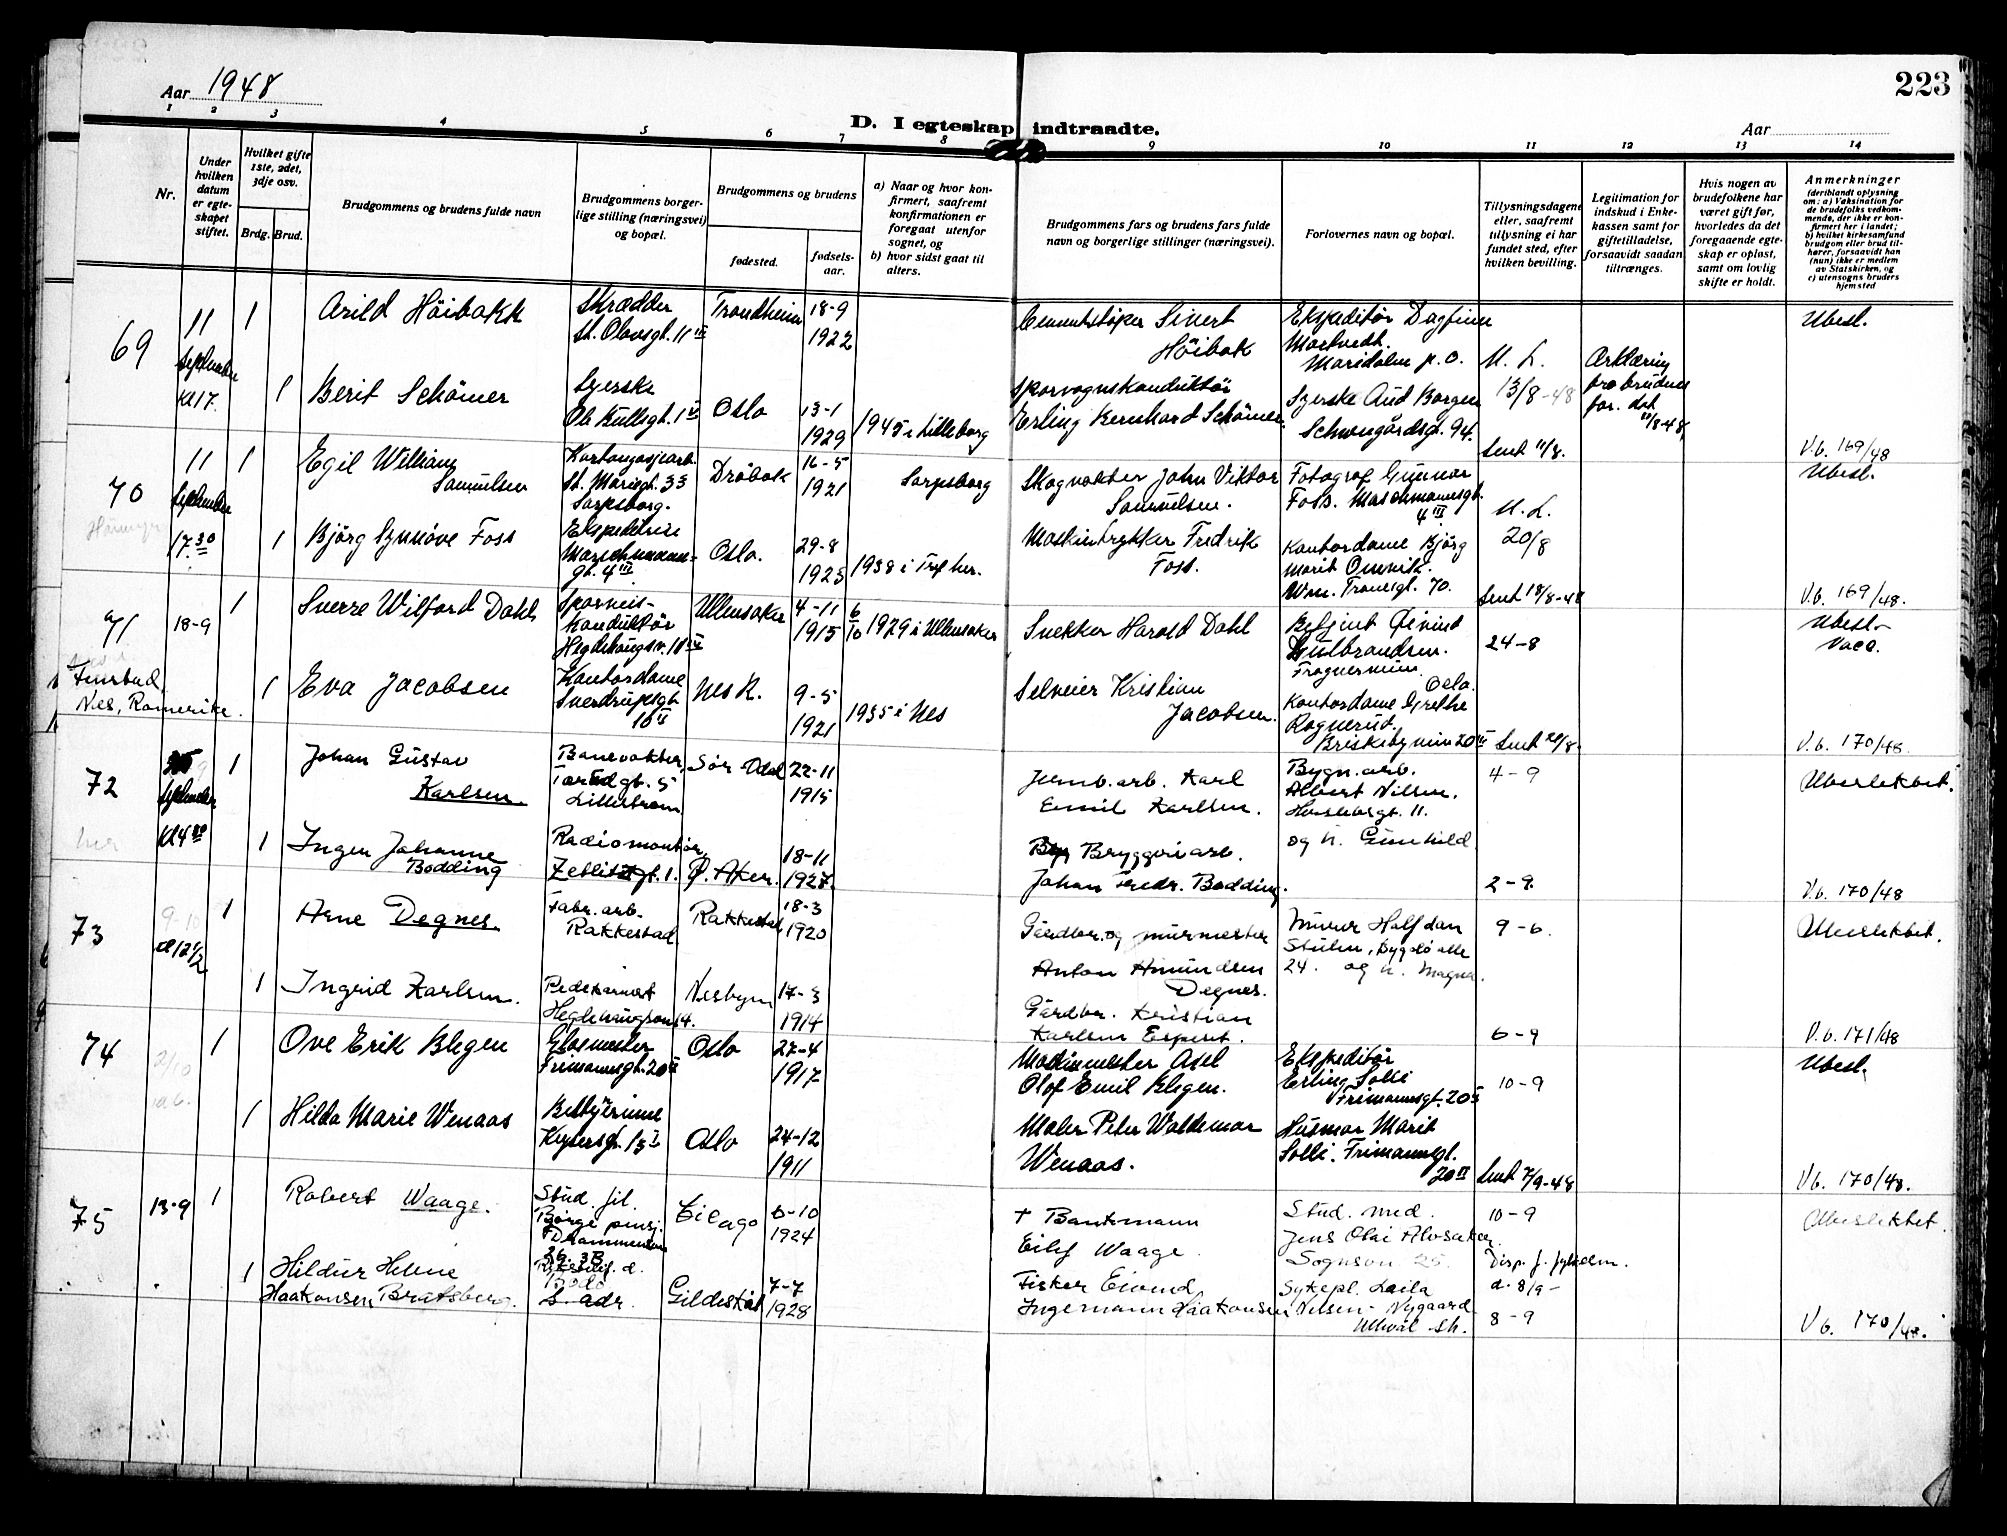 Aar 1948
223
D. I egteskap indtraadte.
Aar
1 2 3 4 5 6 7 8 9 10 11 12 13 14
Nr.
Under hvilken datum er egteskapet stiftet.
Hvilket gifte 1ste, 2det, 3dje osv.
Brdg. Brud.
Brudgommens og brudens fulde navn
Brudgommens borgerlige stilling (næringsvei) og bopæl.
Brudgommens og brudens
fødested.
fødselsaar.
a) Naar og hvor konfirmert, saafremt konfirmationen er foregaat utenfor sognet, og
b) hvor sidst gaat til alters.
Brudgommens fars og brudens fars fulde navn og borgerlige stillinger (næringsvei).
Forlovernes navn og bopæl.
Tillysningsdagene eller, saafremt tillysning ei har fundet sted, efter hvilken bevilling.
Legitimation for indskud i Enkekassen samt for giftetilladelse, forsaavidt saadan tiltrænges.
Hvis nogen av brudefolkene har været gift før, hvorledes da det foregaaende egteskap er opløst, samt om lovlig skifte er holdt.
Anmerkninger
(deriblandt oplysning om: a) Vaksination for de brudefolks vedkommende, der ikke er konfirmert her i landet;
b) hvilket kirkesamfund brudgom eller brud tilhører, forsaavidt han (hun) ikke er medlem av Statskirken, og
c) utensogns bruders hjemsted
69
11 September kl 17.
1
Arild Höibakk
Skrædder
St. Olavsgt. 11 III
Trondheim
18-9
1922
Cementstøper Sivert
Höibak
Ekspeditør Dagfinn
Maridalen p.o.
M. L.
13/8-48
Erklæring fra brudens far. dat
Ubesl.
1
Berit Schömer
Syerske
Ole Bullsgt. 1 IV
Oslo
13-1
1929
1945 i Lilleborg
Sporvognskonduktör
Erling Bernhard Schömer.
Syerske Aud Borgen
Schweigårdsgt. 94.
Sent 11/8.
V.b. 169/48
70
11 September
17.30
1
Egil William
Samuelsen
St. Mariegt. 33
Sarpsborg.
Dröbak
16-5
1921
Sarpsborg
Skogvokter John Viktor
Samuelsen.
Fotograf Gunnar
Foss. Maschmannsgt.
4 III
M. L.
20/8
Ubesl.
1
Bjørg Synnöve Foss
Ekspeditrise
Maschmannsgt. 4 III
Oslo.
29-8
1923
1938 i Tref her.
Maskintrykker Fredrik
Foss.
Kontordame Bjørg
Marit Omvik.
Wm. Tranesgt. 70.
Sent 18/8-48
V.b. 169/48.
71
18-9
1
Sverre Wilford Dahl
Sporveis-
konduktör
Hegdehaugsv. 18
Ullensaker
4-11
1915
6/10 1929 i Ullensaker
Snekker Harald Dahl
Betjent Øivind
Gulbrandsen.
Frognervein
Oslo.
24-8
Ubesl.
Vacc.
Nes, Romerike.
1
Eva Jacobsen
Kontordame
Sverdrupsgt
16 II
Nes R.
9-5
1921
1935 i Nes
Selveier Kristian
Jacobsen.
Kontordame Grethe
Rognerud,
Briskebyveien 20 III
Sent 20/8.
V.b. 170/48.
72
September
Kl 4
1
Johan Gustav
Karlsen
Banevokter,
Lilleström
Sør Odal
22-11
1915
Jernb. arb. Karl
Emil Karlsen.
Bygn. arb.
Albert Nilsen,
Herslebsgt. 11.
4-9
Ubeslektet.
1
Inger Johanne
Bodding
Radiomontør,
Zetlitzgt. 1.
Ø. Aker.
18-11
1927
Bryggeriarb.
Johan Fredr. Bodding.
og h. Gunhild
2-9.
V.b. 170/48
73
9-10
kl 12 1/2
1
Arne Degnes.
Fabr. arb.
Rakkestad
Rakkestad
18-3
1920
Gårdbr. og murmester
Anton Amundsen
Degnes.
Murer Halfdan
Stulen, Bygdø alle
24. og h. Magna.
9-6.
Ubeslektet.
1
Ingrid Karlsen.
Hegdehaugsvn 14.
Nesbyen
17-3
1914
Gårdbr. Kristian
Karlsen Espeset.
6-9
V.b. 171/48
74
2/10
1
Ove Erik Blegen
Glasmester
Frimannsgt. 20 II
Oslo
27-4
1917
Maskinmester Axel
Olof Emil Blegen.
Ekspeditör
Erling Solli
Frimannsgt. 20
10-9
Ubesl.
1
Hilda Marie Wenaas
Keysersgt. 13 I
Oslo
24-12
1911
Maler Peter Waldemar
Wenaas.
Husmor Marit
Solli. Frimannsgt.
20 II
Sent 7/9-48
V.b. 170/48.
75
13-9
1
Robert Waage.
Stud. fil.
Børge pensj.
Drammensvn
26. 3B
Cicago
6-10
1924
+ Bankmann
Eilif Waage.
Stud. med.
Jens Olai Alvsaker
Sognsvn 25.
10-9
Disp. f. fylkesm.
d. 8/9-
Ubeslektet.
1
Hildur Helene
Haakonsen Bratsberg.
Bodø
s. adr.
Gildeskål
7-7
1928
Fisker Eivind
Ingemann Haakonsen
Sykepl. Laila
Nilsen-Nygaard
Ullevål sh.
8-9
V.b. 170/48.